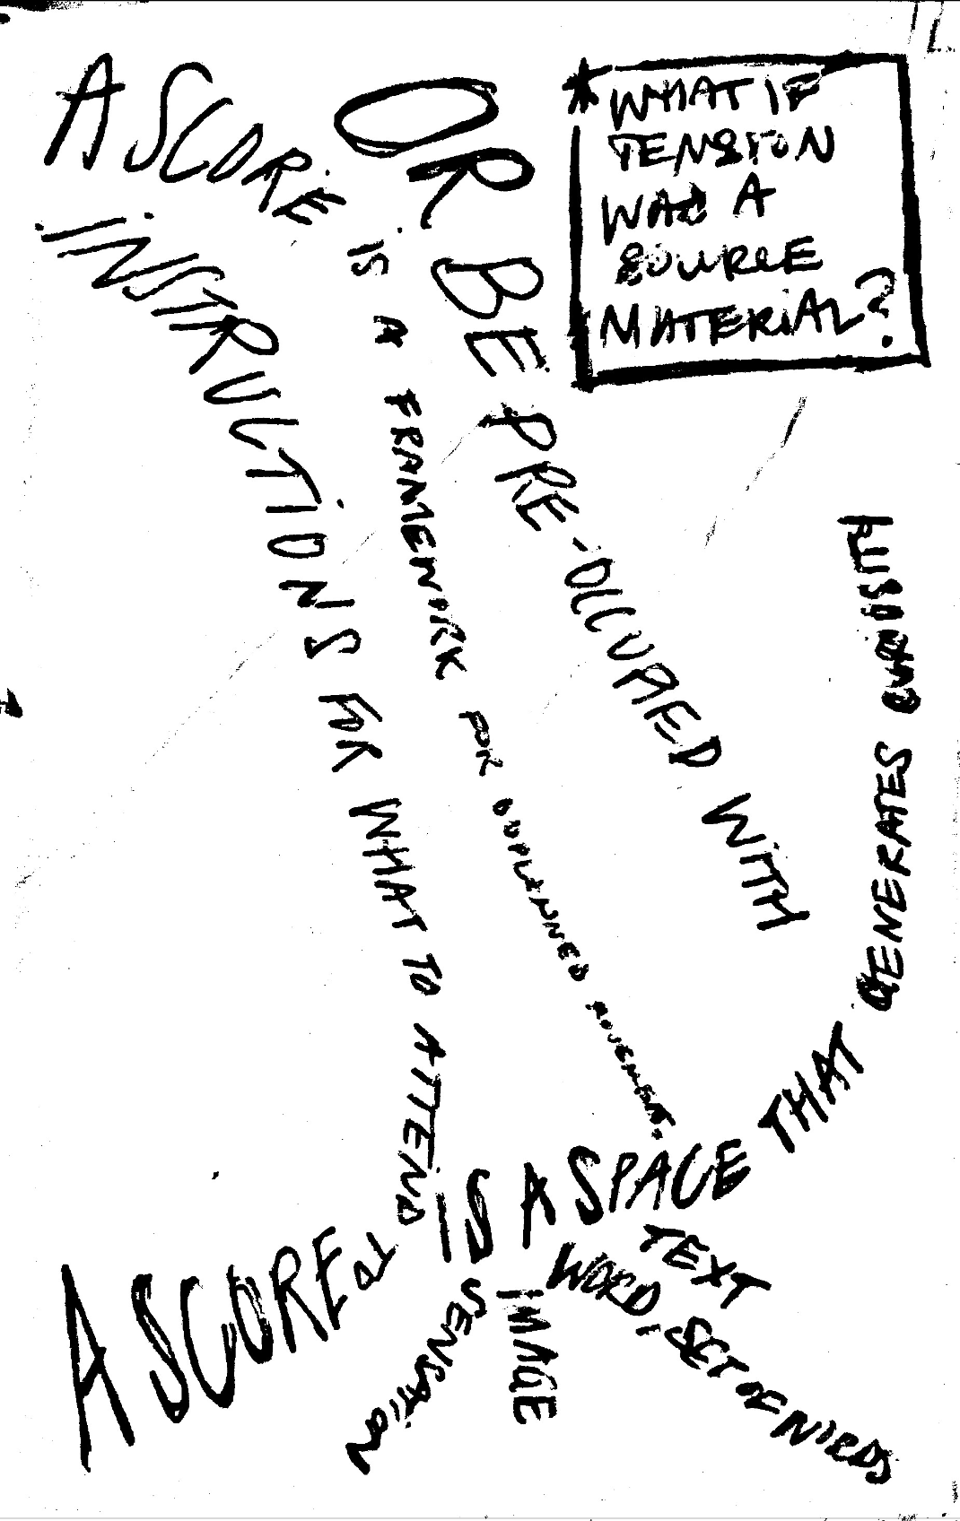 A SCORE IS A FRAMEWORK FOR UNPLANNED MOVEMENT.
OR BE PRE-OCCUPIED WITH
* WHAT IF
TENSION
WAS A
SOURCE
MATERIAL?
INSTRUCTIONS FOR WHAT TO ATTEND TO
A SCORE IS A SPACE THAT GENERATES CURIOSITY
TEXT
WORD, SET OF
IMAGE
SENSATION